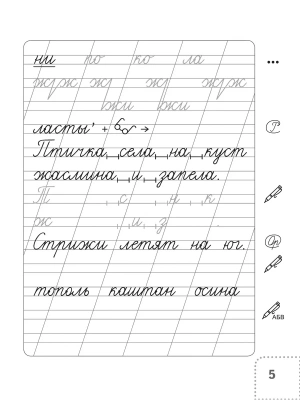 ни по ко ла
жрж жр жр жрж
жи жи
ласты' + → 
Птичка села на куст
жасмина и запела.
П с н к
ж и з
Стрижи летят на юг.
тополь каштан осина
АБВ
5